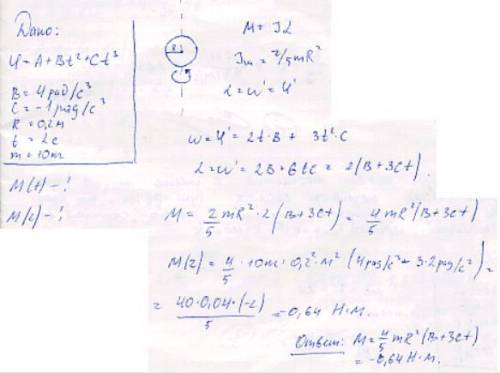 Дано:
φ = A + Bt² + Ct³
B = 4 рад/с³
C = -1 рад/с³
R = 0,2м
t = 2с
m = 10кг
M(t) - ?
M(2) - ?
R
M = Iε
Iш = 2/5 mR²
ε = ω' = φ''
ω = φ' = 2t·B + 3t²·C
ε = ω' = 2B + 6tC = 2(B + 3Ct).
M = 2/5 mR² · 2(B + 3Ct) = 4/5 mR² (B + 3Ct)
M(2) = 4/5 · 10кг · 0,2² м² (4 рад/с² - 3·2 рад/с²) =
= 40·0,04·(-2) / 5 = -0,64 Н·м.
Ответ: M = 4/5 mR² (B + 3Ct)
= -0,64 Н·м.